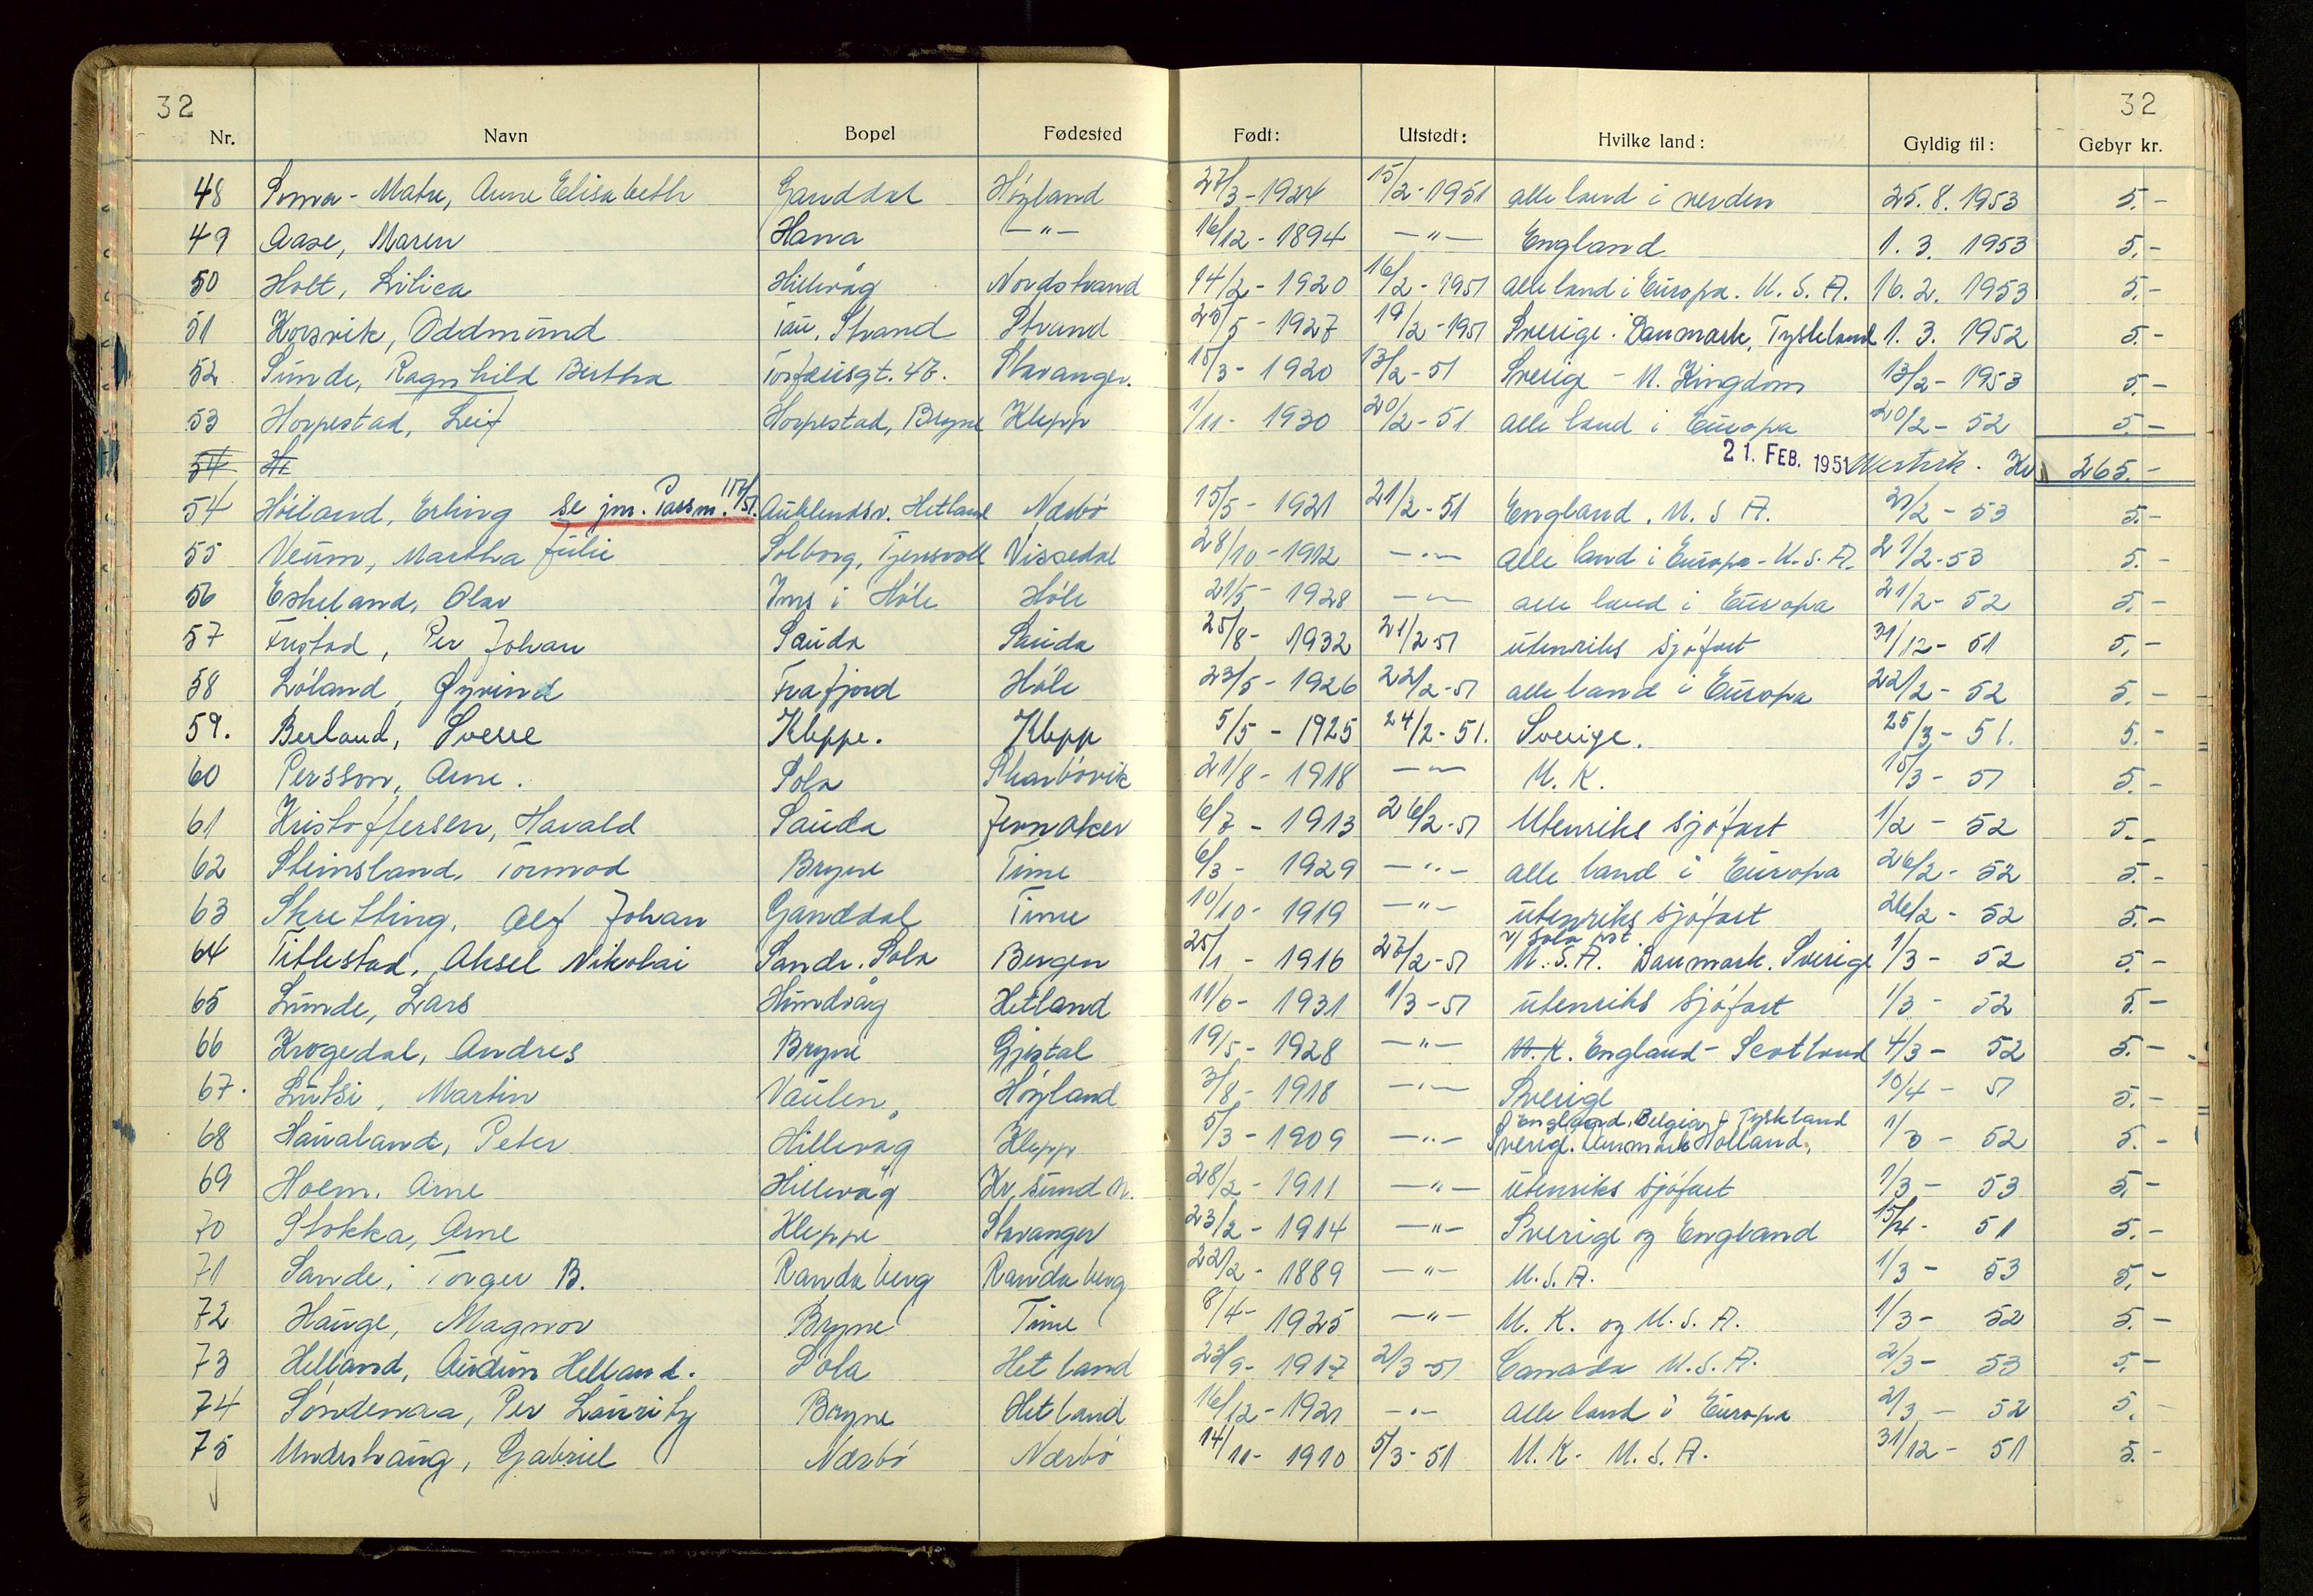 32 32
Nr. Navn Bopel Fødested Født: Utstedt: Hvilke land: Gyldig til: Gebyr kr.
48 Soma-Matre, Anne Elisabeth Ganddal Høyland 27/3-1924 15/2-1951 alle land i verden 25.8.1953 5.-
49 Aase, Maren Hana -"- 16/12-1894 -"- England 1.3.1953 5.-
50 Holt, Lilica Hillevåg Nordstrand 14/2-1920 16/2-1951 alle land i Europa. U.S.A. 16.2.1953 5.-
51 Korsvik, Oddmund Tau, Strand Strand 25/5-1927 19/2-1951 Sverige. Danmark, Tyskland 1.3.1952 5.-
52 Sunde, Ragnhild Bertha Torfæusgt. 47. Stavanger. 15/3-1920 13/2-51 Sverige - U. Kingdom 13/2-1953 5.-
53 Horpestad, Leif Horpestad, Bryne Klepp 1/11-1930 20/2-51 alle land i Europa 20/2-52 5.-
54 H 21. FEB. 1951 Kr. 265.-
54 Høiland, Erling se jnr. Passm. 117/51. Auklendsv. Hetland Nærbö 15/5-1921 21/2-51 England. U.S.A. 21/2-53 5.-
55 Veum, Martha Julie Solborg, Tjensvoll Vissedal 28/10-1912 -"- alle land i Europa-U.S.A. 21/2-53 5.-
56 Eskeland, Olav Ims i Höle Höle 21/5-1928 -"- alle land i Europa 21/2-52 5.-
57 Fristad, Per Johan Sauda Sauda 25/8-1932 21/2-51 utenriks sjöfart 31/12-51 5.-
58 Löland, Øyvind Frafjord Höle 23/5-1926 22/2-51 alle land i Europa 22/2-52 5.-
59. Berland, Sverre Kleppe. Klepp 5/5-1925 24/2-51. Sverige. 25/3-51. 5.-
60 Persson, Arne. Sola Skarbövik 21/8-1918 -"- U.K. 15/3-51 5.-
61 Kristoffersen, Harald Sauda Jevnaker 6/7-1913 26/2-51 Utenriks sjöfart 1/2-52 5.-
62 Steinsland, Tormod Bryne Time 6/3-1929 -"- alle land i Europa 26/2-52 5.-
63 Skretting, Alf Johan Ganddal Time 10/10-1919 -"- utenriks sjöfart 26/2-52 5.-
v/ Sola pst.
64 Titlestad, Aksel Nikolai Sande. Sola Bergen 25/1-1916 27/2-51 U.S.A. Danmark. Sverige 1/3-52 5.-
65 Lunde, Lars Hundvåg Hetland 11/6-1931 1/3-51 utenriks sjöfart 1/3-52 5.-
66 Krogedal, Andres Bryne Gjestal 19/5-1928 -"- U.K. England-Scotland 4/3-52 5.-
67. Lutsi, Martin Vaulen Høyland 3/8-1918 -"- Sverige 10/4-51 5.-
England, Belgia, Tyskland
68 Haualand, Peter Hillevåg Klepp 5/3-1909 -"- Sverige. Danmark Holland. 1/3-52 5.-
69 Holm, Arne Hillevåg Kr.sund N. 28/2-1911 -"- utenriks sjöfart 1/3-53 5.-
70 Stokka, Arne Kleppe Stavanger 23/2-1914 -"- Sverige og England 15/4-51 5.-
71 Sande, Torger B. Randaberg Randaberg 22/2-1889 -"- U.S.A. 1/3-53 5.-
72 Hauge, Magnor Bryne Time 8/4-1925 -"- U.K. og U.S.A. 1/3-52 5.-
73 Helland, Audun Helland. Sola Hetland 23/9-1917 2/3-51 Canada U.S.A. 2/3-53 5.-
74 Søndenaa, Per Lauritz Bryne Hetland 16/12-1921 -"- alle land i Europa 2/3-52 5.-
75 Undershaug, Gabriel Nærbö Nærbö 14/11-1910 5/3-51 U.K. U.S.A. 31/12-51 5.-